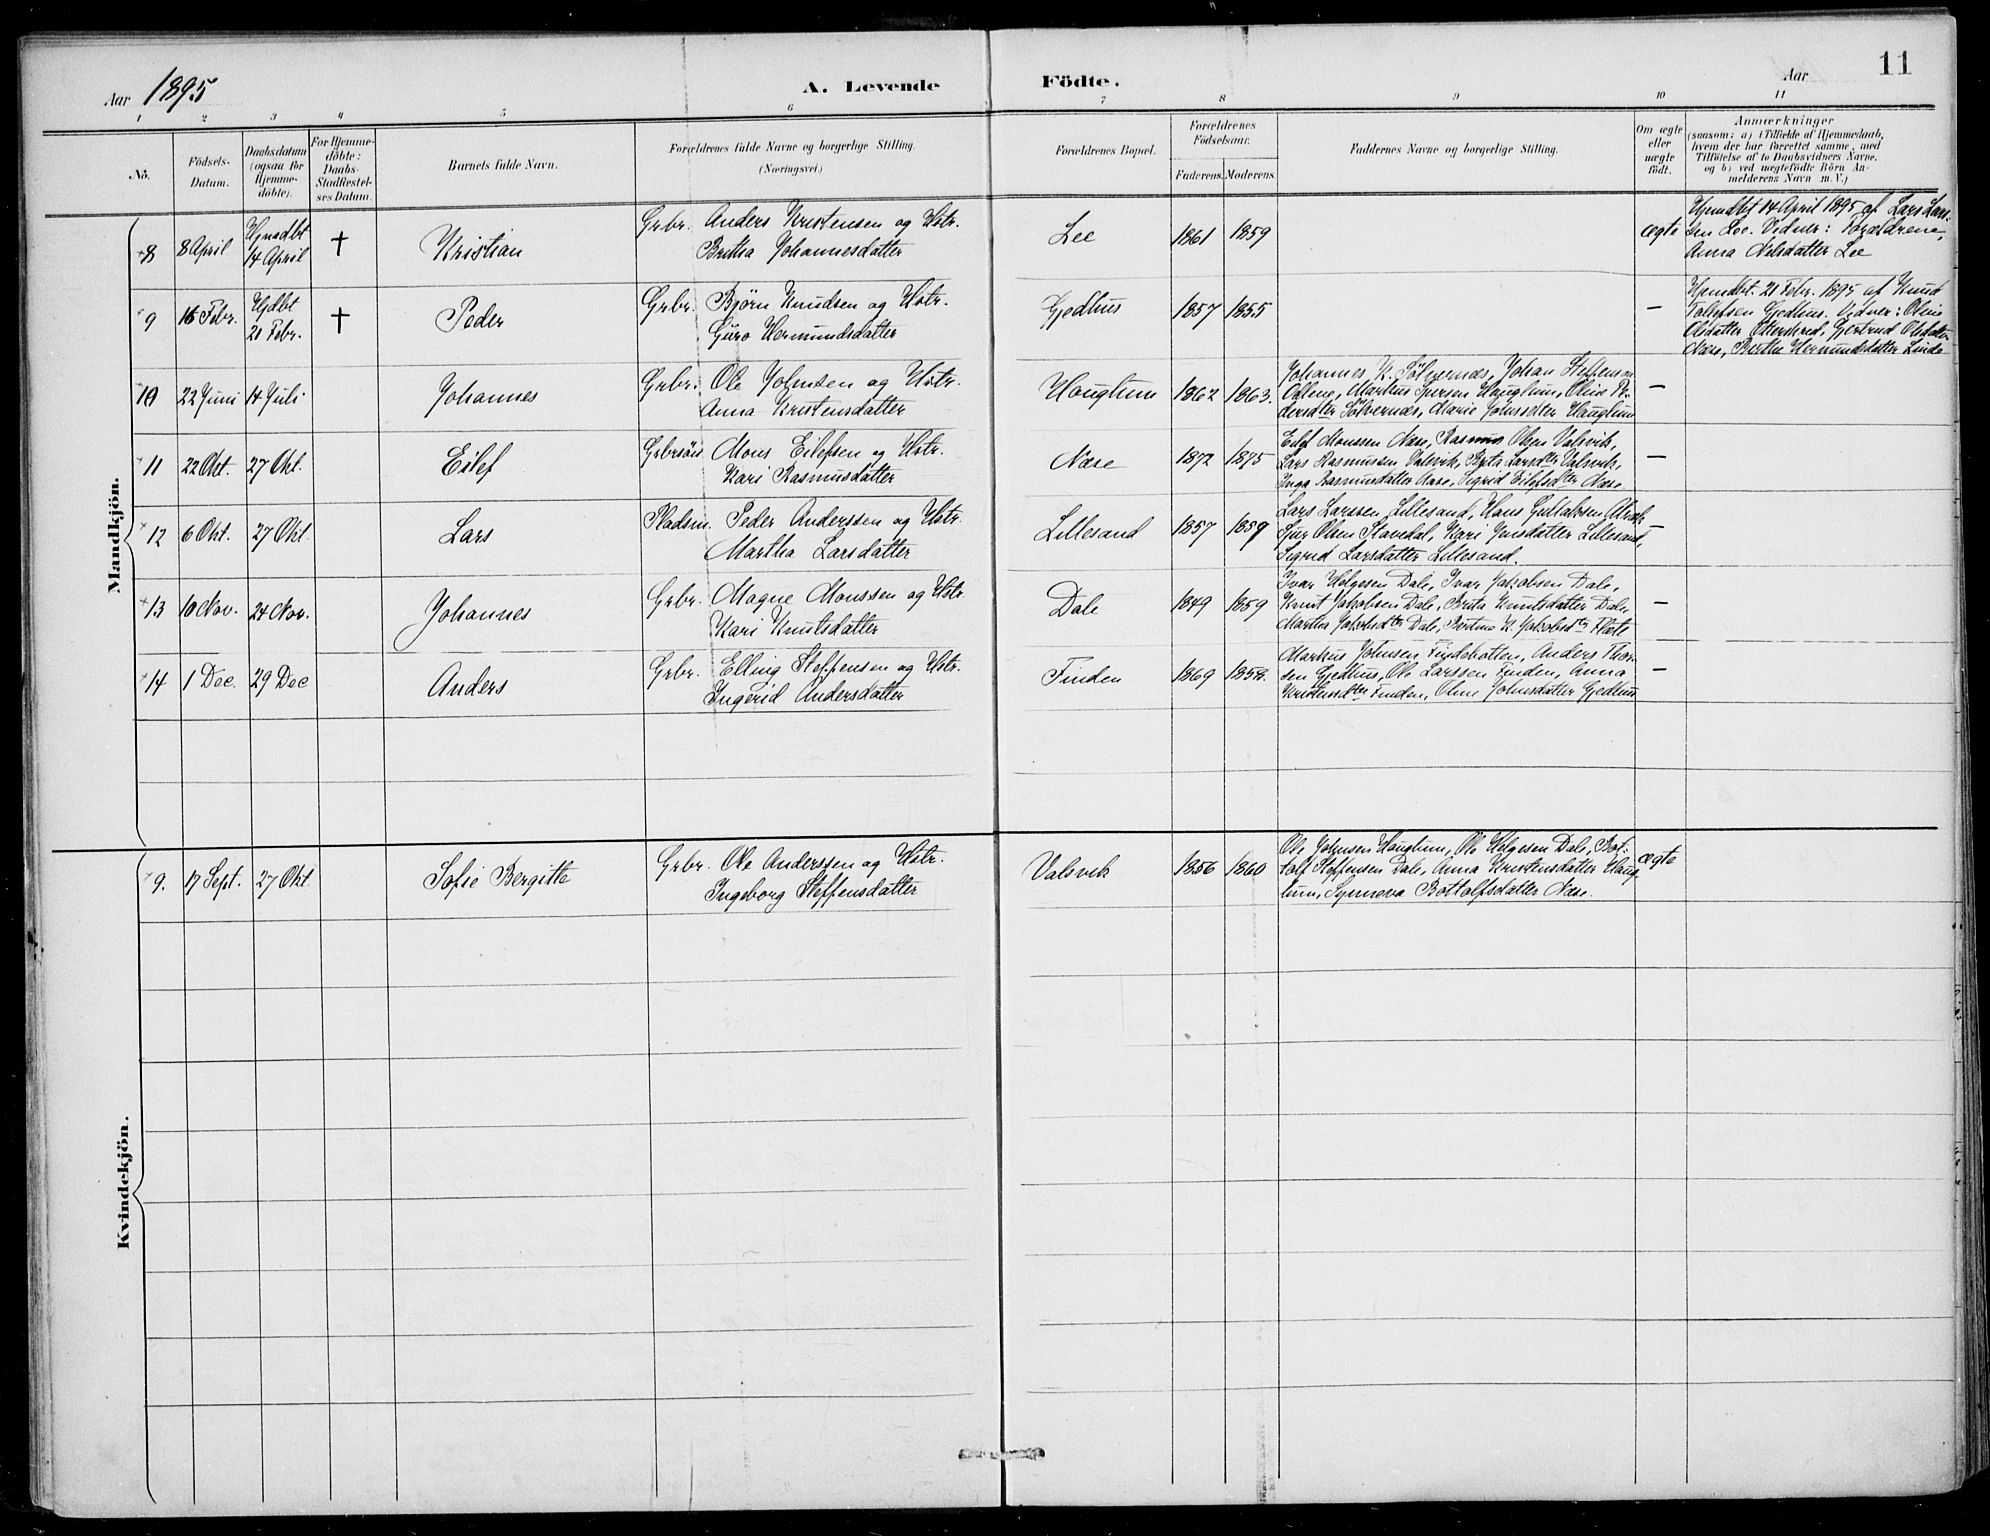 Aar 1895
A. Levende Födte.
Aar
11
1 2 3 4 5 6 7 8 9 10 11
No.
Födsels-
Datum.
Daabsdatum
(ogsaa for
Hjemme-
döbte).
For Hjemme-
döbte:
Daabs-
Stadfæstel-
ses Datum.
Barnets fulde Navn.
Forældrenes fulde Navne og borgerlige Stilling.
(Næringsvei.)
Forældrenes Bopæl.
Forældrenes
Födselsaar.
Faderens. Moderens.
Faddernes Navne og borgerlige Stilling.
Om ægte
eller
uægte
födt.
Anmærkninger
(saasom: a) i Tilfælde af Hjemmedaab,
hvem der har forrettet samme, med
Tilföielse af to Daabsvidners Navne,
og b) ved uægtefödte Börn An-
melderens Navn m. V.)
Mandkjön.
8
8 April
Hjmdbt
14 April
†
Kristian
Grbr. Anders Kristensen og Hstr.
Britha Johannesdatter
Lee
1861 1859
ægte
Hjemdbt 14 April 1895 af Lars Lars-
sen Lee. Vidner: Forældrene,
Anna Nilsdatter Lee
9
16 Febr.
Hjdbt
21 Febr.
†
Peder
Grbr. Bjørn Knudsen og Hstr.
Guro Hermundsdatter
Gjedhus
1857 1855
—
Hjemdbt. 21 Febr. 1895 af Knud
Tollefsen Gjedhus. Vidner: Oline
Olsdatter Gertrud Olsdatter
Næse, Brithe Hermundsdatter Linde
10
22 Juni
14 Juli
Johannes
Grbr. Ole Johnsen og Hstr.
Anna Kristensdatter
Hauglum
1862 1863.
Johannes K. Sölvernæs, Johan Steffensen
Markus Iversen Hauglum, Oline Pe-
dersdter Sölvernæs, Marie Johnsdtter Hauglum
—
11
22 Okt.
27 Okt.
Eilef
Grbrsön Mons Eilefsen og Hstr.
Kari Rasmusdatter
Næse
1872 1875
Eilef Monssen Næse, Rasmus Olsen Valsvik,
Lars Rasmussen Valsvik, Brita Larsdter Valsvik,
Inga Rasmusdatter Næse, Sigrid Eilefsdter Næse.
—
12
6 Okt.
27 Okt.
Lars
Pladsm. Peder Anderssen og Hstr.
Martha Larsdatter
Lillesand
1857 1859
Lars Larssen Lillesand, Hans
Sjur Olsen Stavedal, Kari Jensdatter Lillesand,
Sigrid Larsdatter Lillesand.
—
13
10 Nov.
24 Nov.
Johannes
Grbr. Magne Monssen og Hstr.
Kari Knutsdatter
Dale
1849 1859
Ivar Helgesen Dale, Ivar Jakobsen Dale,
Knut Jakobsen Dale, Brita Knutsdatter Dale,
Martha Jakobsdter Dale, Bertine K. Jakobsdter Flæte
—
14
1 Dec.
29 Dec
Anders
Grbr. Elling Steffensen og Hstr.
Ingerid Andersdatter
Finden
1869
Markus Johnsen Findebotten, Anders Thor-
sen Gjedhus, Ole Larssen Finden, Anna
Kristensdter Finden, Oline Johnsdatter Gjedhus
—
Kvindekjön.
9.
17 Sept.
27 Okt
Sofie Bergitte
Grbr. Ole Anderssen og Hstr.
Ingeborg Steffensdatter
Valsvik
1856 1860
Ole Johnsen Hauglum, Ole Helgesen Dale, Bot-
tolf Steffensen Dale, Anna Kristensdatter Haug-
lum, Synneva Bottolfsdatter Næse.
ægte